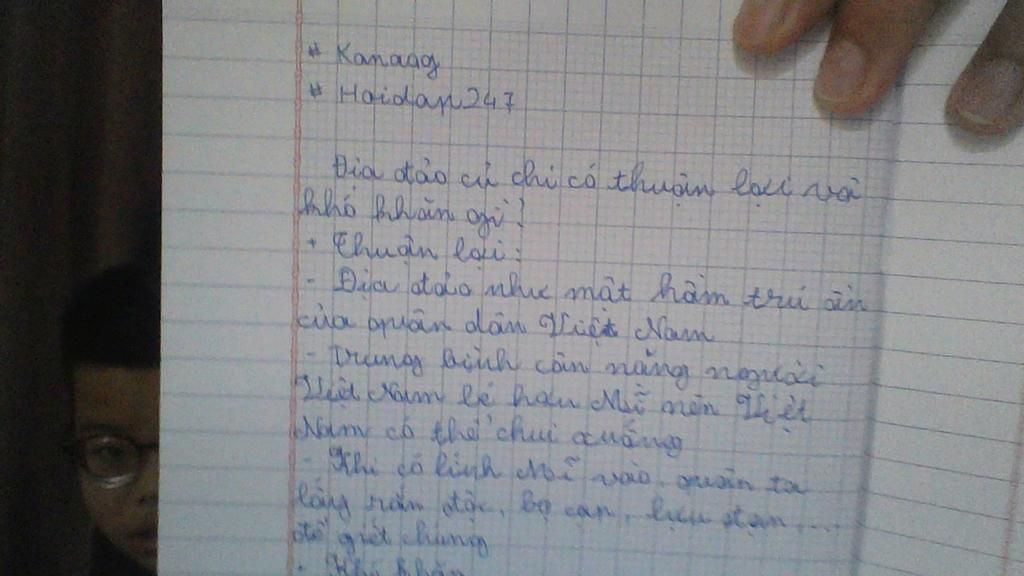 * Kanaag
* Haidan247
Địa đảo củ chi có thuận lợi và
khó khăn gì?
+ Thuận lợi:
- Địa đảo như một hầm trú ẩn
của quân dân Việt Nam
- Trung bình cân nặng người
Việt Nam bé hơn Mĩ nên Việt
Nam có thể chui xuống
- Khi có lính Mĩ vào, quân ta
lấy rắn độc, bọ cạp, lựu đạn....
để giết chúng
+ Khó khăn